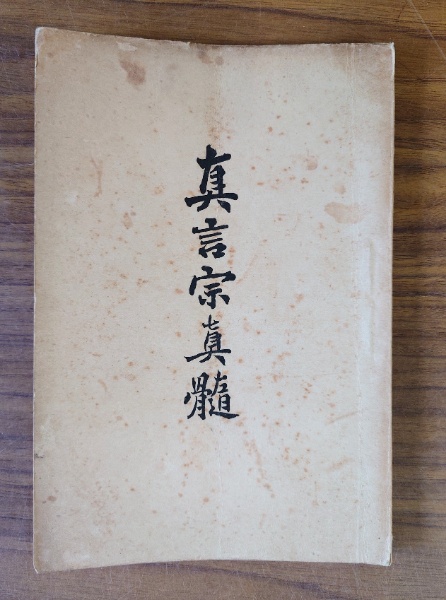 真言宗真髓